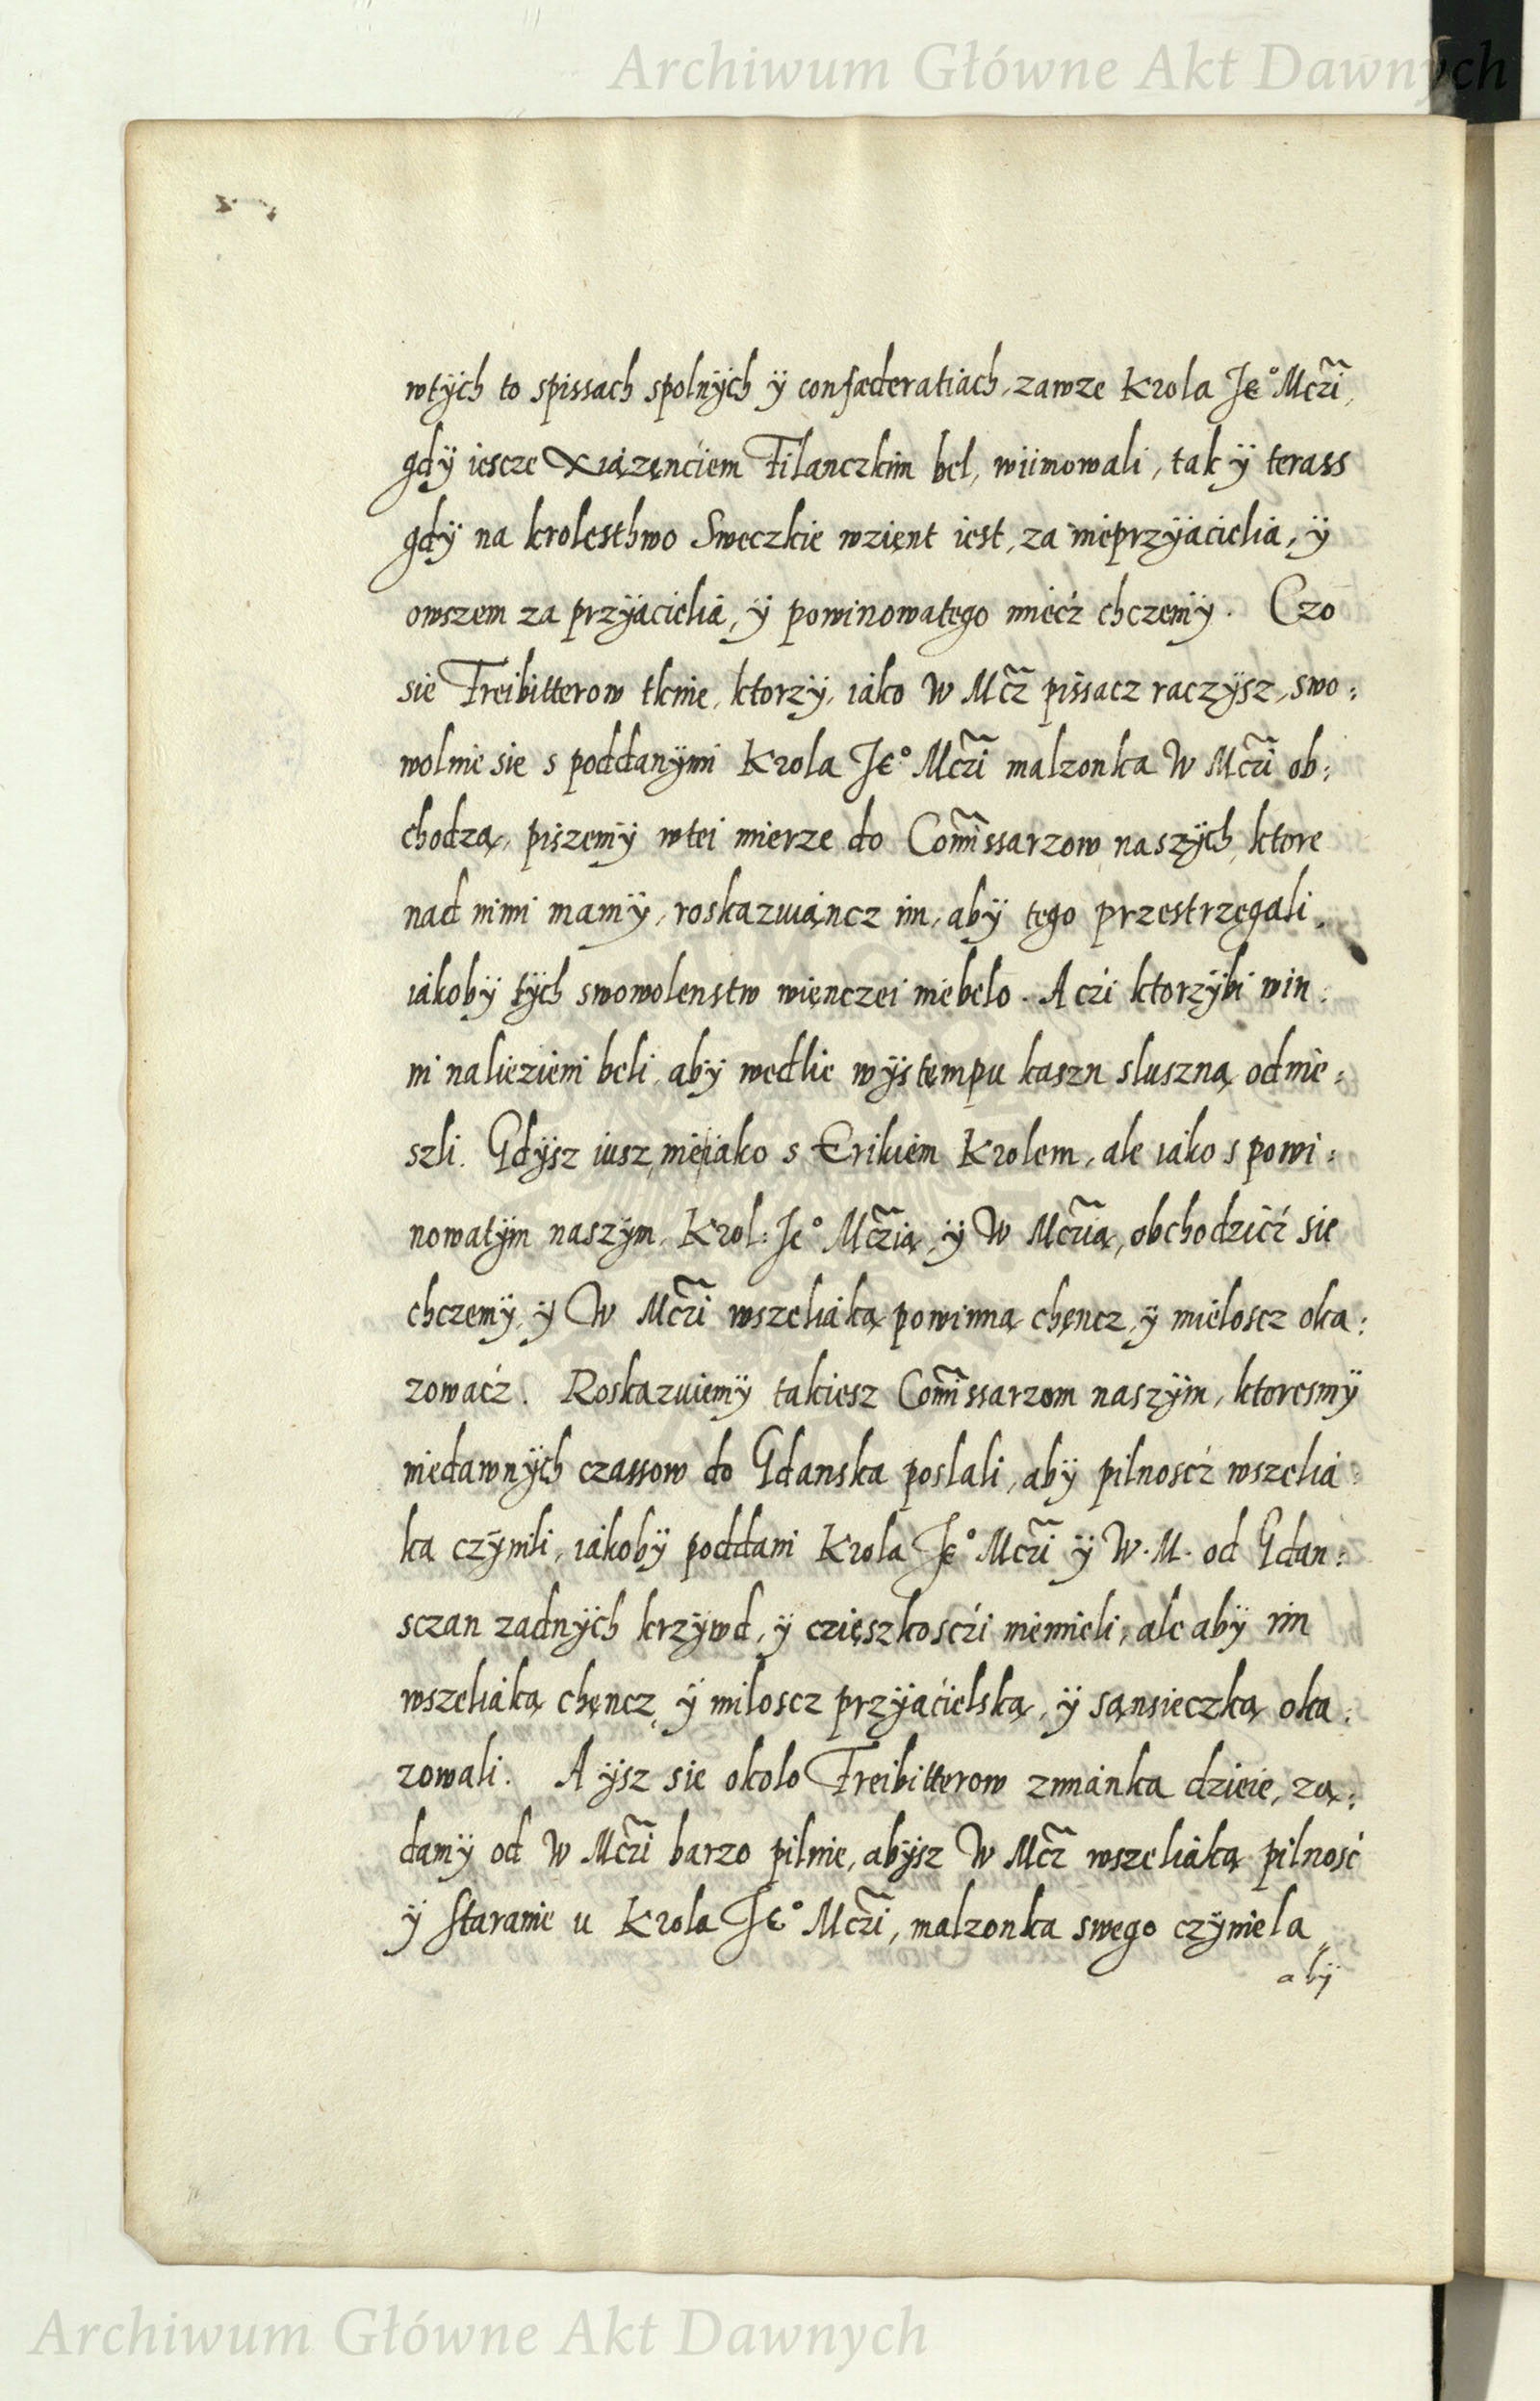 Archiwum Główne Akt Dawnych
wtÿch to spissach spolnÿch ÿ confæderatiach, zawze Krola Je° Mczi,
gdÿ iescze Xiązęnciem Filanczkim bel, wiimowali, tak ÿ terass
gdÿ na krolesthwo Sweczkie wzięnt iest, za nieprzÿiacielia, ÿ
owszem za przÿiacielia, ÿ powinowatego miecź chczemÿ. Czo
sie Freibitterow tknie, ktorzÿ, iako W Mcz pissacz raczÿsz, swo:
wolnie sie s poddanÿmi Krola Je° Mczi malzonka W Mczi ob:
chodzą, piszemÿ wtei mierze do Comissarzow naszÿch, ktore
nad nimi mamÿ, roskazuiąncz im, abÿ tego przestrzegali,
iakobÿ tÿch swowolenstw więnczei niebelo. A czi ktorzÿbi win:
ni nalieziení beli, abÿ wedlie wÿstęmpu kaszn sluszną odnie:
szli. Gdÿsz iusz nieiako s Erikiem Krolem, ale iako s powi:
nowatÿm naszÿm, Krol: Je° Mczią, ÿ W Mczią, obchodzicź sie
chczemÿ, ÿ W Mczi wszeliaką powinną chęncz, ÿ mieloscz oka:
zowacź. Roskazuiemÿ takiesz Comissarzom naszÿm, ktoresmÿ
niedawnÿch czassow do Gdanska poslali, abÿ pilnoscź wszelia:
ka czÿnili, iakobÿ poddani Krola Je° Mczi ÿ W. M. od Gdan:
sczan zadnÿch krzÿwd, ÿ czięszkosczi niemieli, ale abÿ im
wszeliaką chęncz, ÿ miloscz przÿiacielską, ÿ sąnsieczką oka:
zowali. A ÿsz sie okolo Freibitterow zmianka dzieie, zą:
damÿ od W Mczi barzo pilnie, abÿsz W Mcz wszeliaką pilnosć
ÿ staranie u Krola Je° Mczi, malzonka swego czÿniela,
abÿ
Archiwum Główne Akt Dawnych